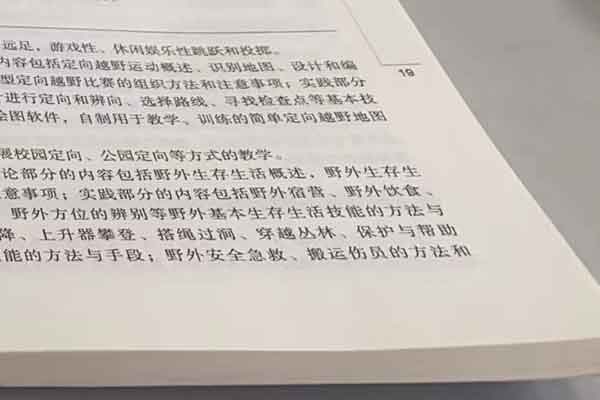 远足，游戏性、休闲娱乐性跳跃和投掷。
内容包括定向越野运动概述、识别地图、设计和编
型定向越野比赛的组织方法和注意事项；实践部分
进行定向和辨向、选择路线、寻找检查点等基本技
绘图软件，自制用于教学、训练的简单定向越野地图
展校园定向、公园定向等方式的教学。
论部分的内容包括野外生存生活概述，野外生存生
意事项；实践部分的内容包括野外宿营、野外饮食、
野外方位的辨别等野外基本生存生活技能的方法与
降、上升器攀登、搭绳过涧、穿越丛林、保护与帮助
能的方法与手段；野外安全急救、搬运伤员的方法和
19